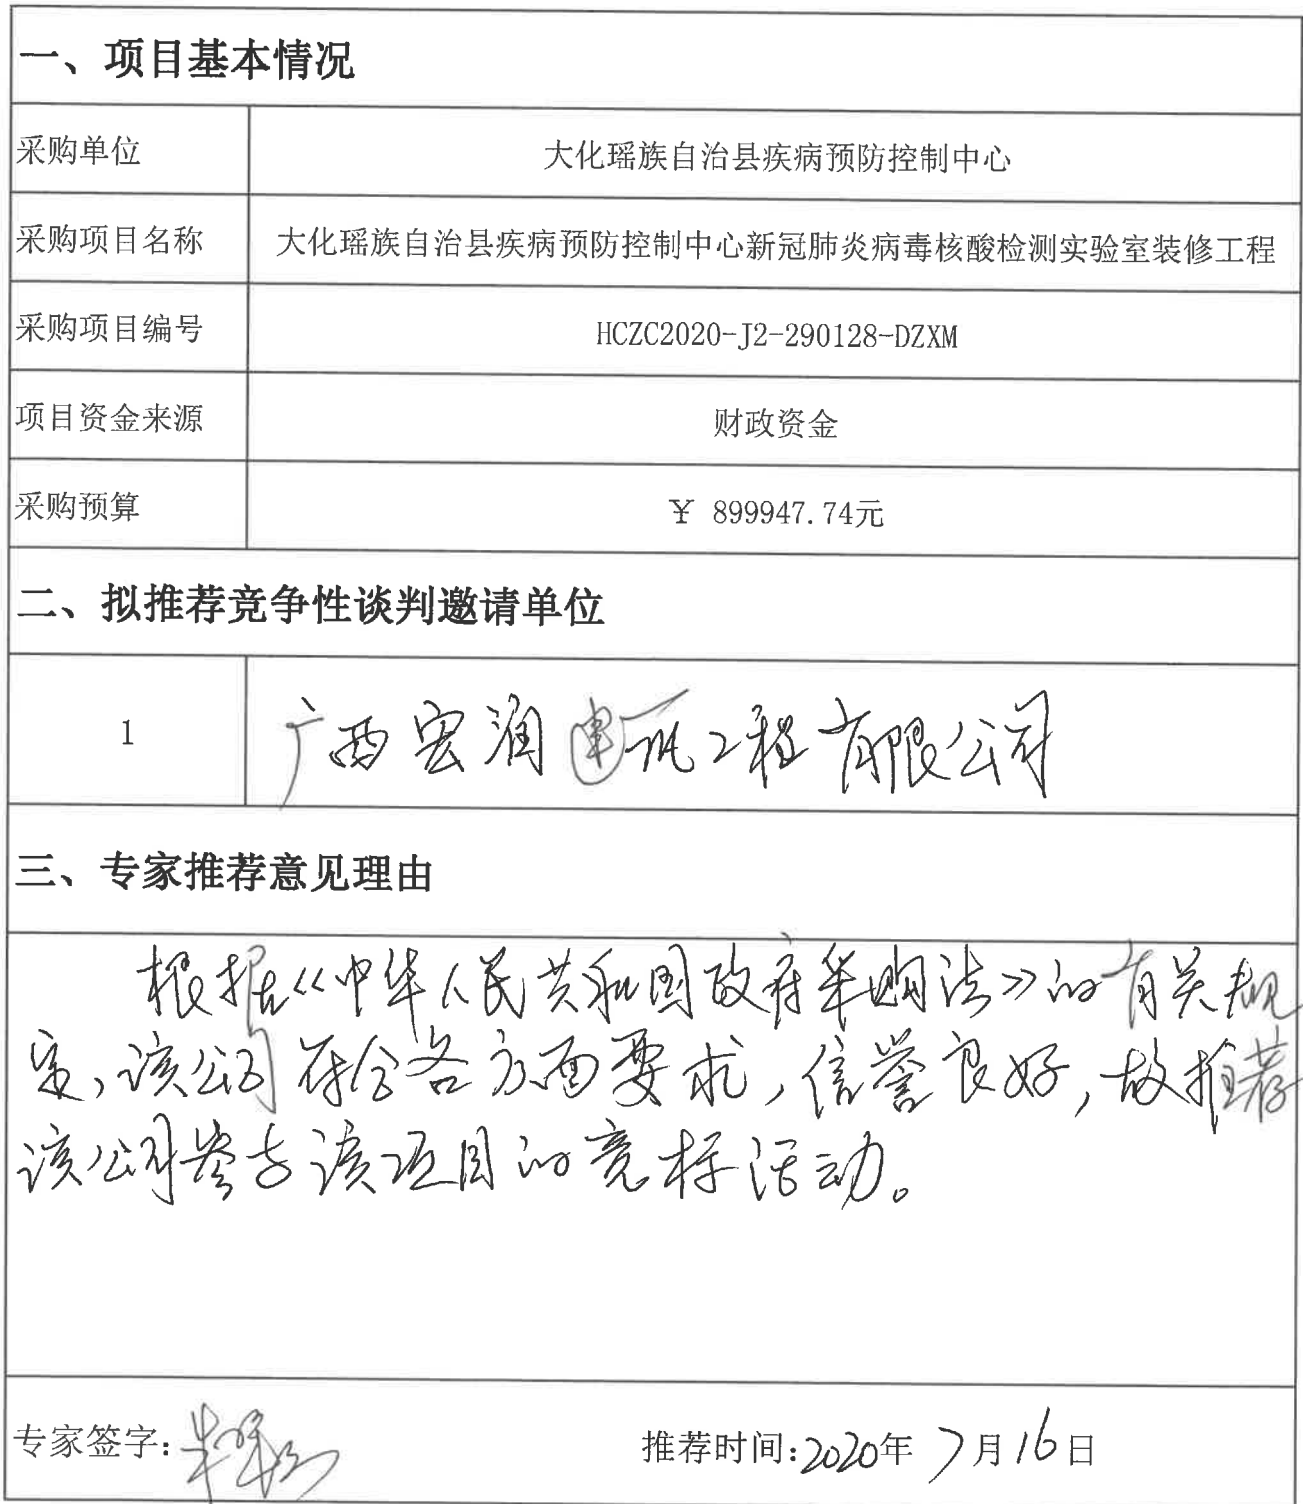 一、项目基本情况
采购单位 大化瑶族自治县疾病预防控制中心
采购项目名称 大化瑶族自治县疾病预防控制中心新冠肺炎病毒核酸检测实验室装修工程
采购项目编号 HCZC2020-J2-290128-DZXM
项目资金来源 财政资金
采购预算 ¥ 899947.74元
二、拟推荐竞争性谈判邀请单位
1 广西宏润建筑工程有限公司
三、专家推荐意见理由
根据《中华人民共和国政府采购法》的有关规
定,该公司符合各方面要求,信誉良好,故推荐
该公司参与该项目的竞标活动。
专家签字: 推荐时间:2020年7月16日